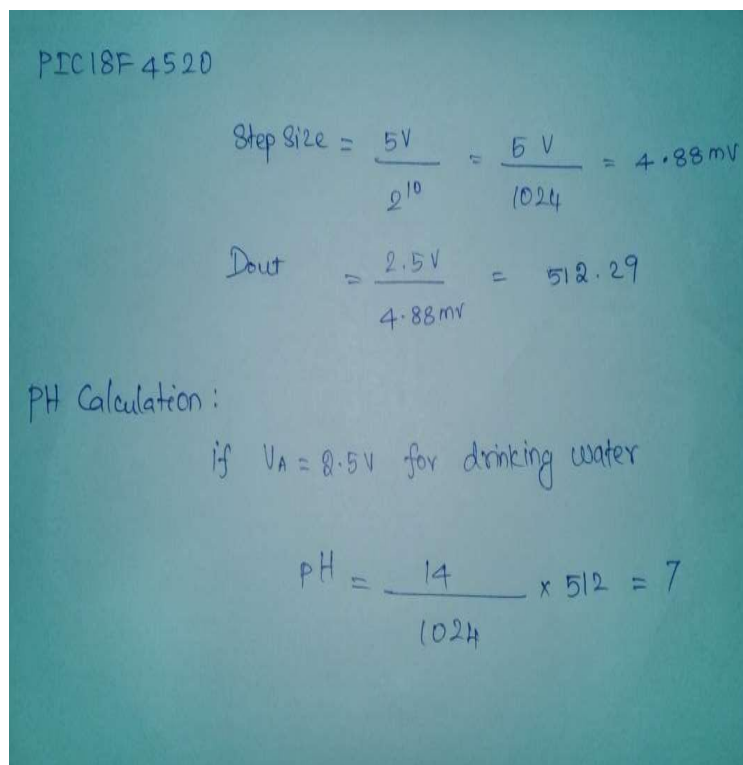 PIC18F4520
Step Size = 5V / 2^10 = 5 V / 1024 = 4.88mV
Dout = 2.5V / 4.88mV = 512.29
PH Calculation :
if VA = 2.5V for drinking water
pH = 14 / 1024 x 512 = 7